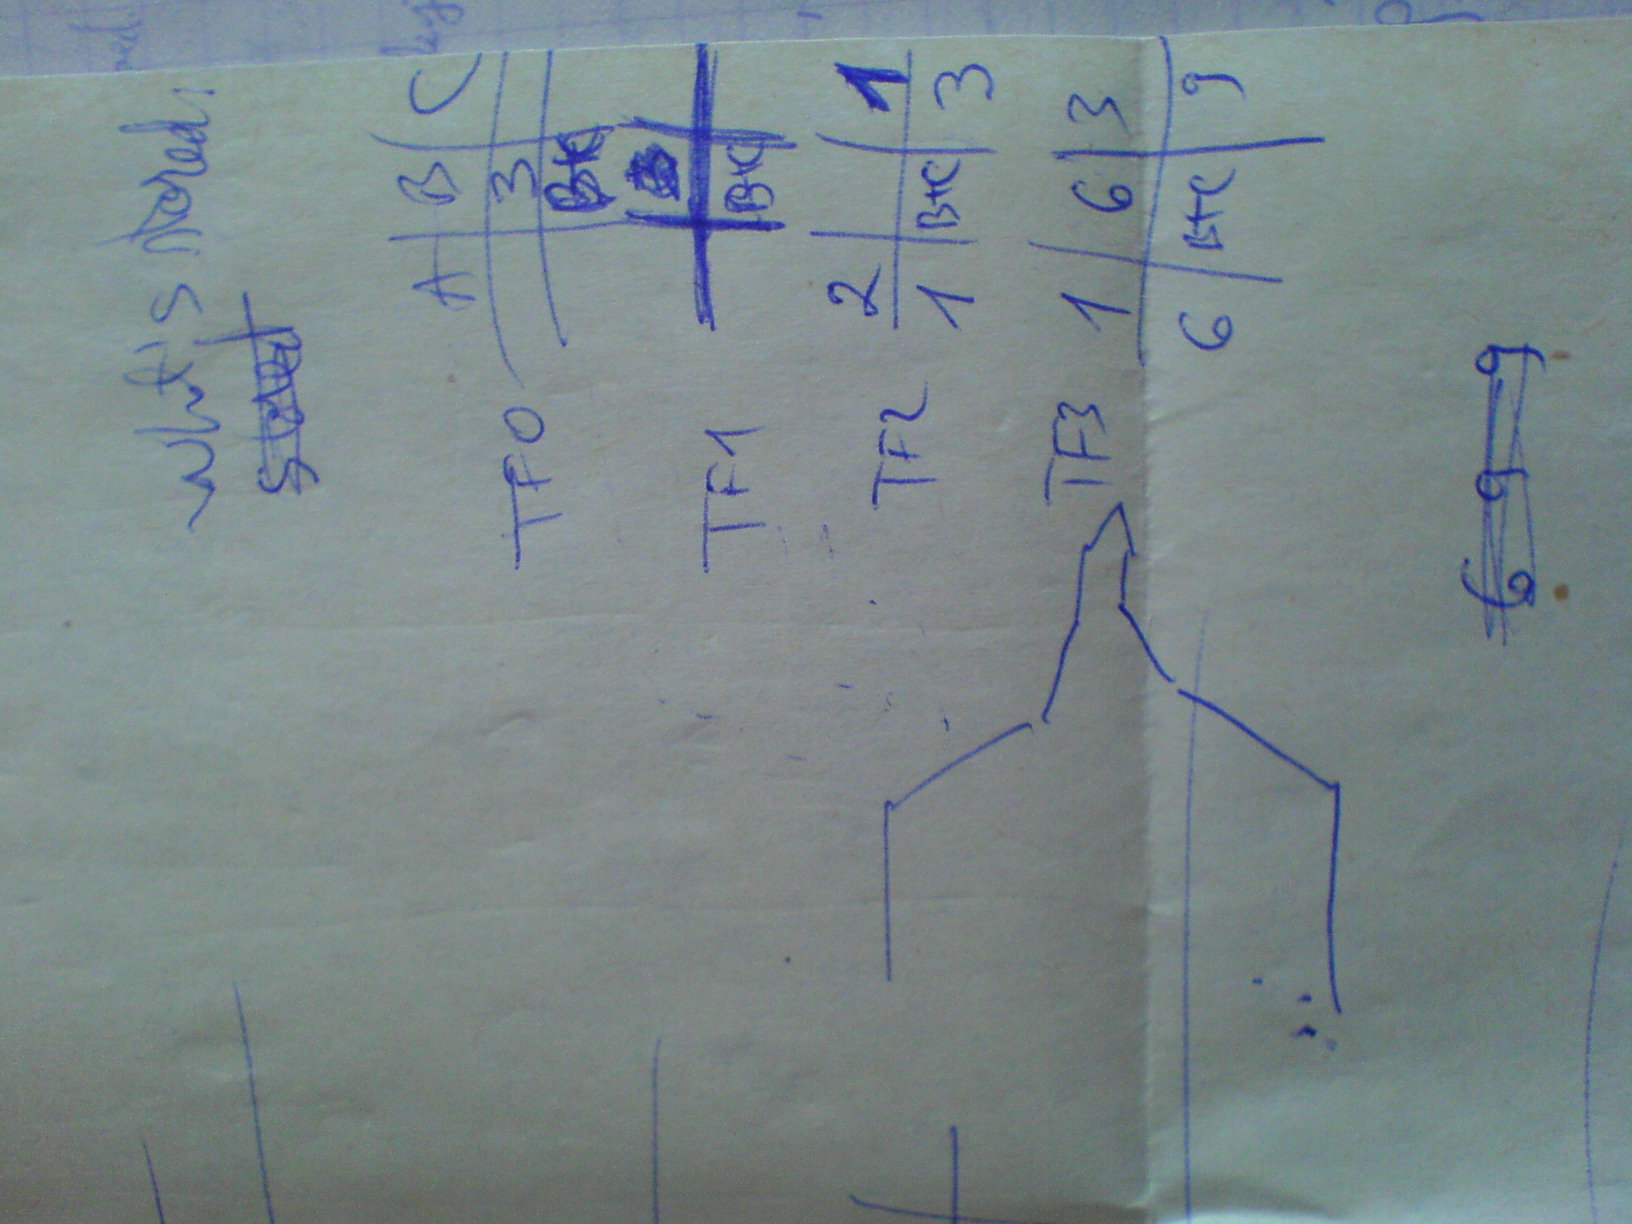 what's stored:
A B C
TF0 3
B+C
TF1
B+C
TF2 2 1
1 B+C 3
TF3 1 6 3
6 B+C 9